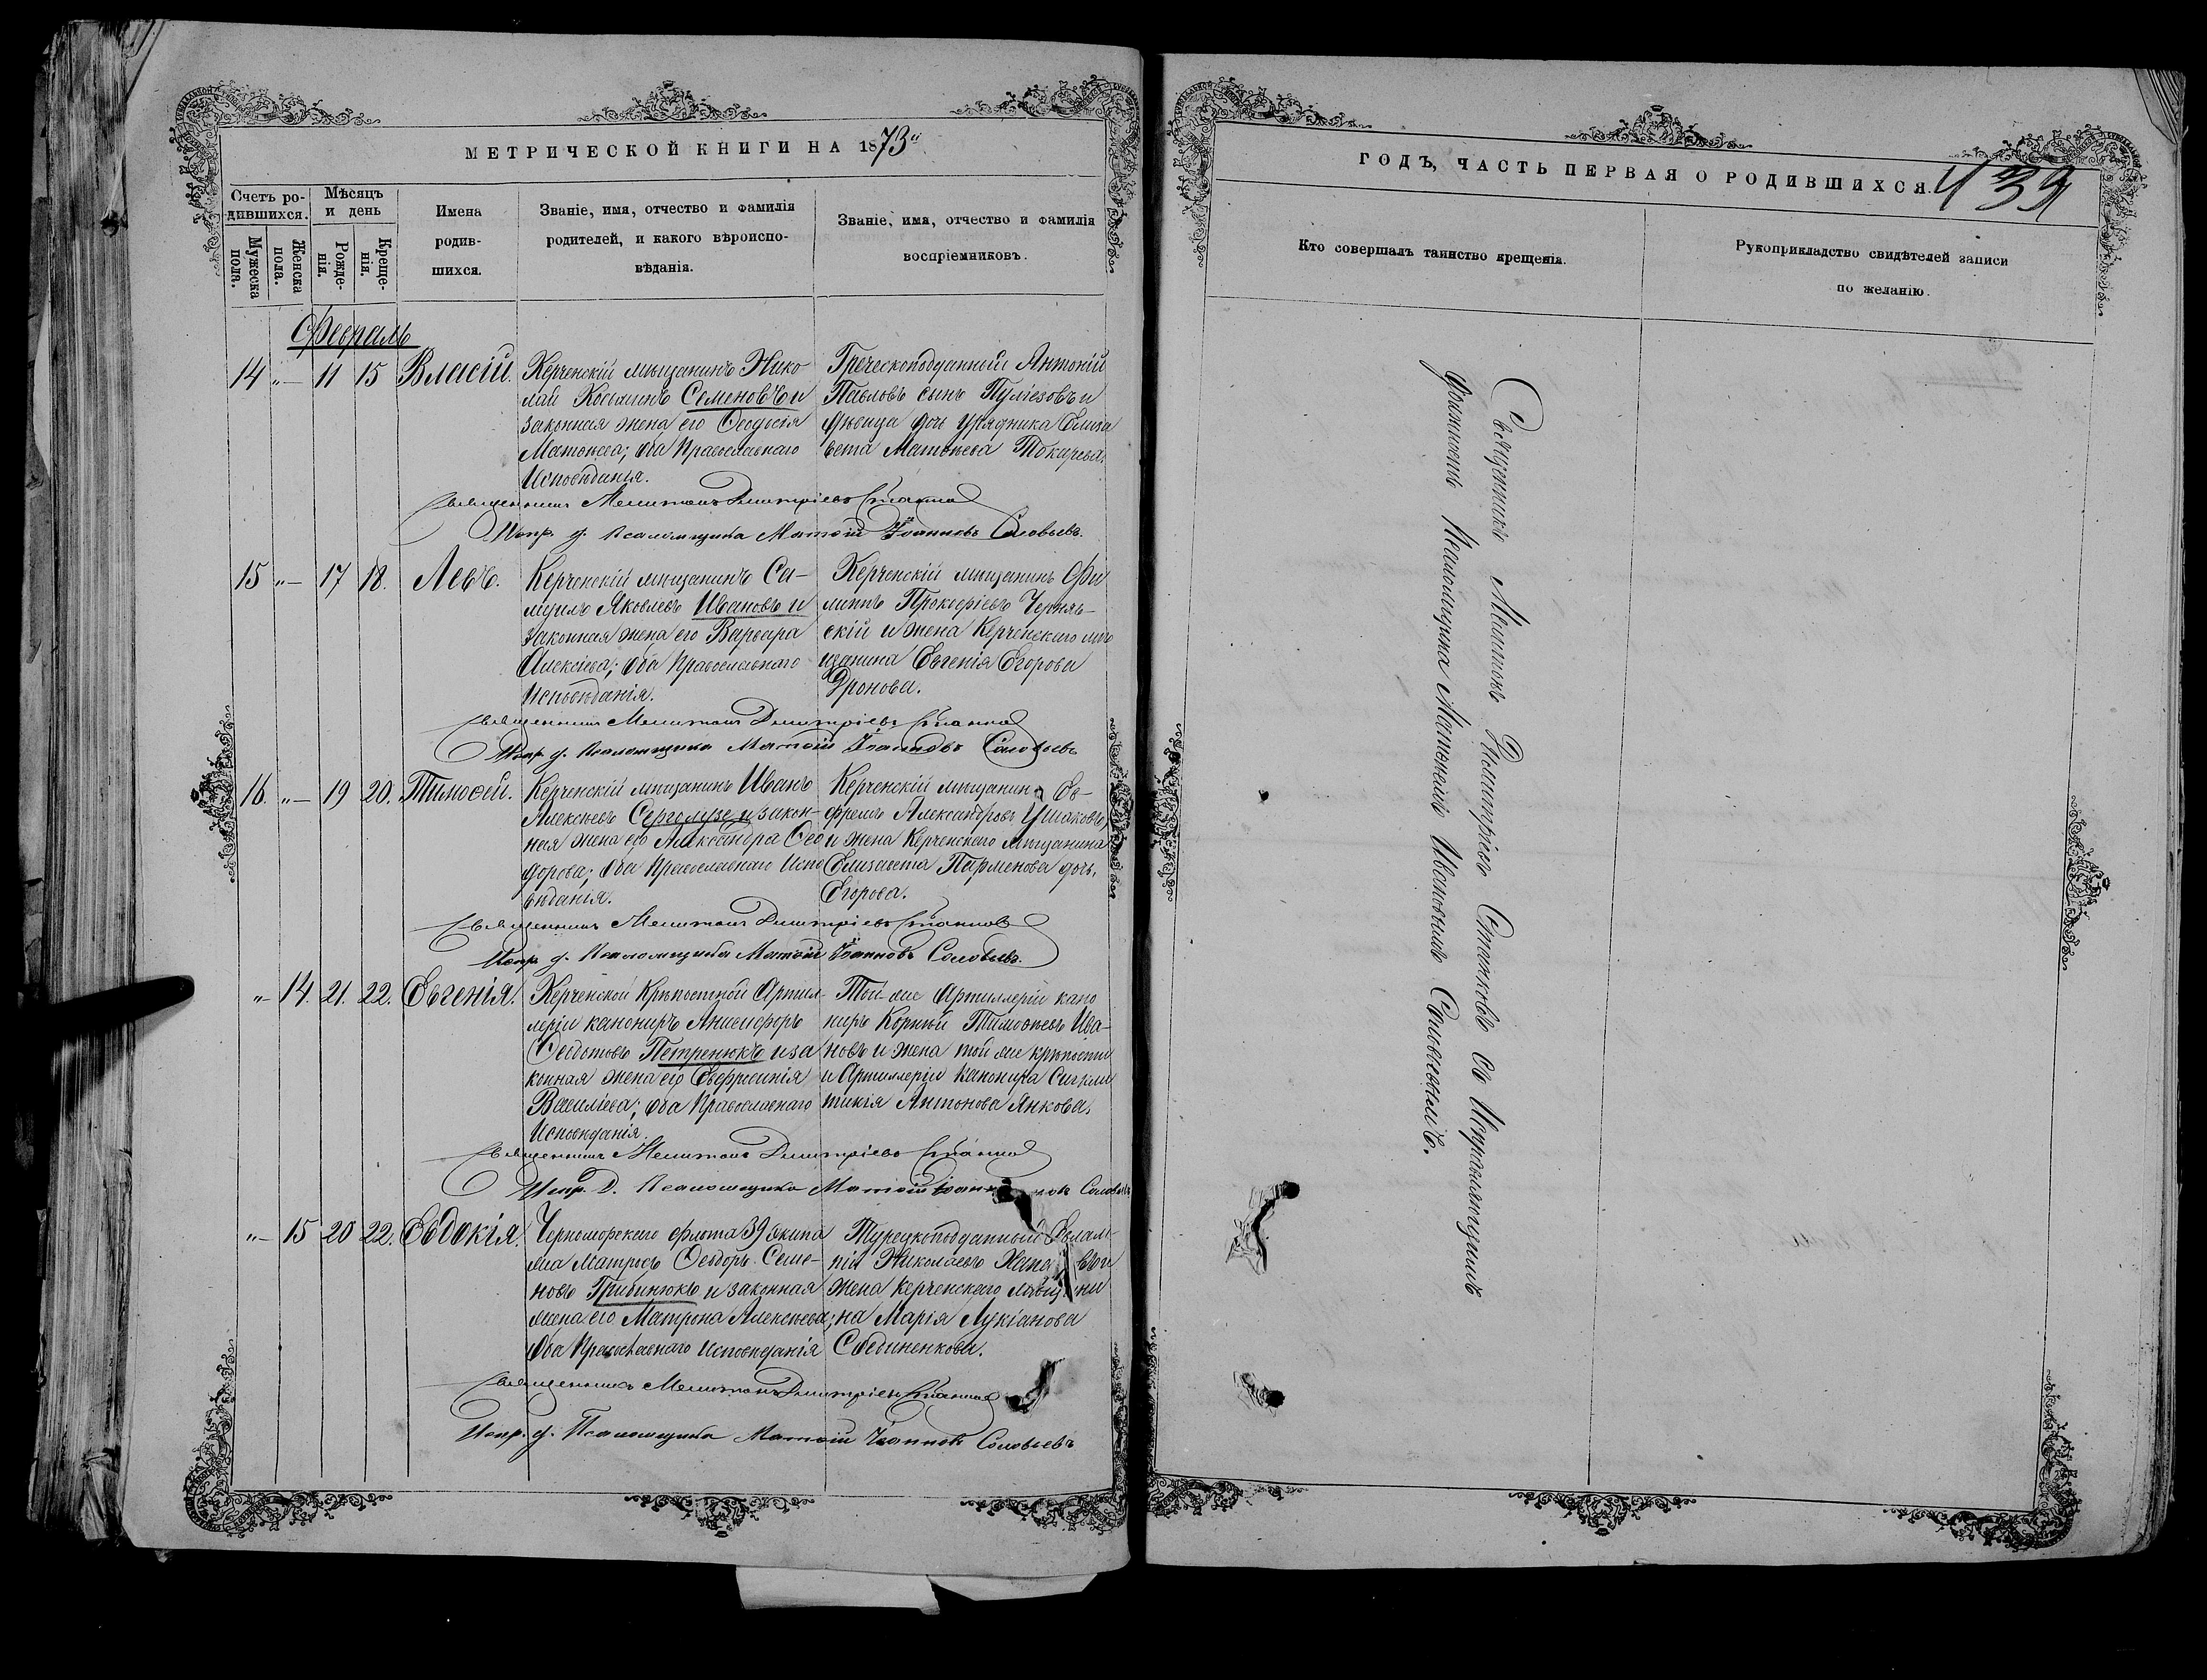 МЕТРИЧЕСКОЙ КНИГИ НА 1873й
Счетъ ро-
дившихся.
Мужеска
пола.
Женска
пола.
Мѣсяцъ
и день
Рожде-
нія.
Креще-
нія.
Имена
родив-
шихся.
Званіе, имя, отчество и фамилія
родителей, и какого вѣроиспо-
вѣданія.
Званіе, имя, отчество и фамилія
воспріемниковъ.
Февраль
14 „— 11 15 Власій.
Керченскій мѣщанинъ Нико
лай Косминъ Семеновъ и
законная жена его Ѳеодосія
Матѳеева; оба Православнаго
Исповѣданія.
Греческоподданный Антоній
Павловъ сынъ Пуліезовъ и
дѣвица дочь Урядника Елиса
вета Матѳеева Токарева.
Священникъ Мелитонъ Димитріевъ Станковъ
Испр. д. Псаломщика Матѳій Іоанновъ Соловьевъ.
15 „— 17 18. Левъ.
Керченскій мѣщанинъ Са-
муилъ Яковлевъ Ивановъ и
законная жена его Варвара
Алексіева; оба Православнаго
Исповѣданія.
Керченскій мѣщанинъ Фи
липпъ Прокофіевъ Черняв-
скій и жена Керченскаго мѣ
щанина Евгенія Егорова
Дронова.
Священникъ Мелитонъ Димитріевъ Станковъ
Испр. д. Псаломщика Матѳій Іоанновъ Соловьевъ
16. „— 19 20. Тимоѳей.
Керченскій мѣщанинъ Иванъ
Алексѣевъ Серголузе и закон-
ная жена его Александра Ѳео
дорова; оба Православнаго Испо
вѣданія.
Керченскій мѣщанинъ Еѳ-
фремъ Александровъ Ушаковъ,
и жена Керченскаго мѣщанина
Елизавета Парменова дочь,
Егорова.
Священникъ Мелитонъ Димитріевъ Станковъ
Испр. д. Псаломщика Матѳій Іоанновъ Соловьевъ.
„— 14. 21. 22. Евгенія.
Керченской Крѣпостной Артил-
леріи канониръ Анисифоръ
Ѳеодотовъ Петренюкъ и за
конная жена его Евфросинія
Василіева; оба Православнаго
Исповѣданія.
Той-же Артиллеріи кано
ниръ Корнѣй Тимоѳѣевъ Ива-
новъ и жена той же крѣпостн
и Артиллеріи канонира Сигкли
тикія Антонова Янкова.
Священникъ Мелитонъ Димитріевъ Станковъ
Испр. Д. Псаломщика Матѳій Іоанновъ Соловьевъ
„— 15 20 22. Евдокія.
Черноморскаго флота 39 экипа
жа Матросъ Ѳеодоръ Семе-
новъ Грибинюкъ и законная
жена его Матрона Алексѣева;
Оба Православнаго исповѣданія
Турецкоподданный Евлам-
пій Николаевъ
жена Керченскаго мѣщани
на Марія Лукіанова
Соединенкова.
Священникъ Мелитонъ Димитріевъ Станковъ
Испр. д. Псаломщика Матѳій Іоанновъ Соловьевъ
ГОДЪ, ЧАСТЬ ПЕРВАЯ О РОДИВШИХСЯ.
439
Кто совершалъ таинство крещенія.
Рукоприкладство свидѣтелей записи
по желанію.
Священникъ Мелитонъ Димитріевъ Станковъ съ Исправляющимъ
должность Псаломщика Матѳеемъ Ивановымъ Соловьевымъ.